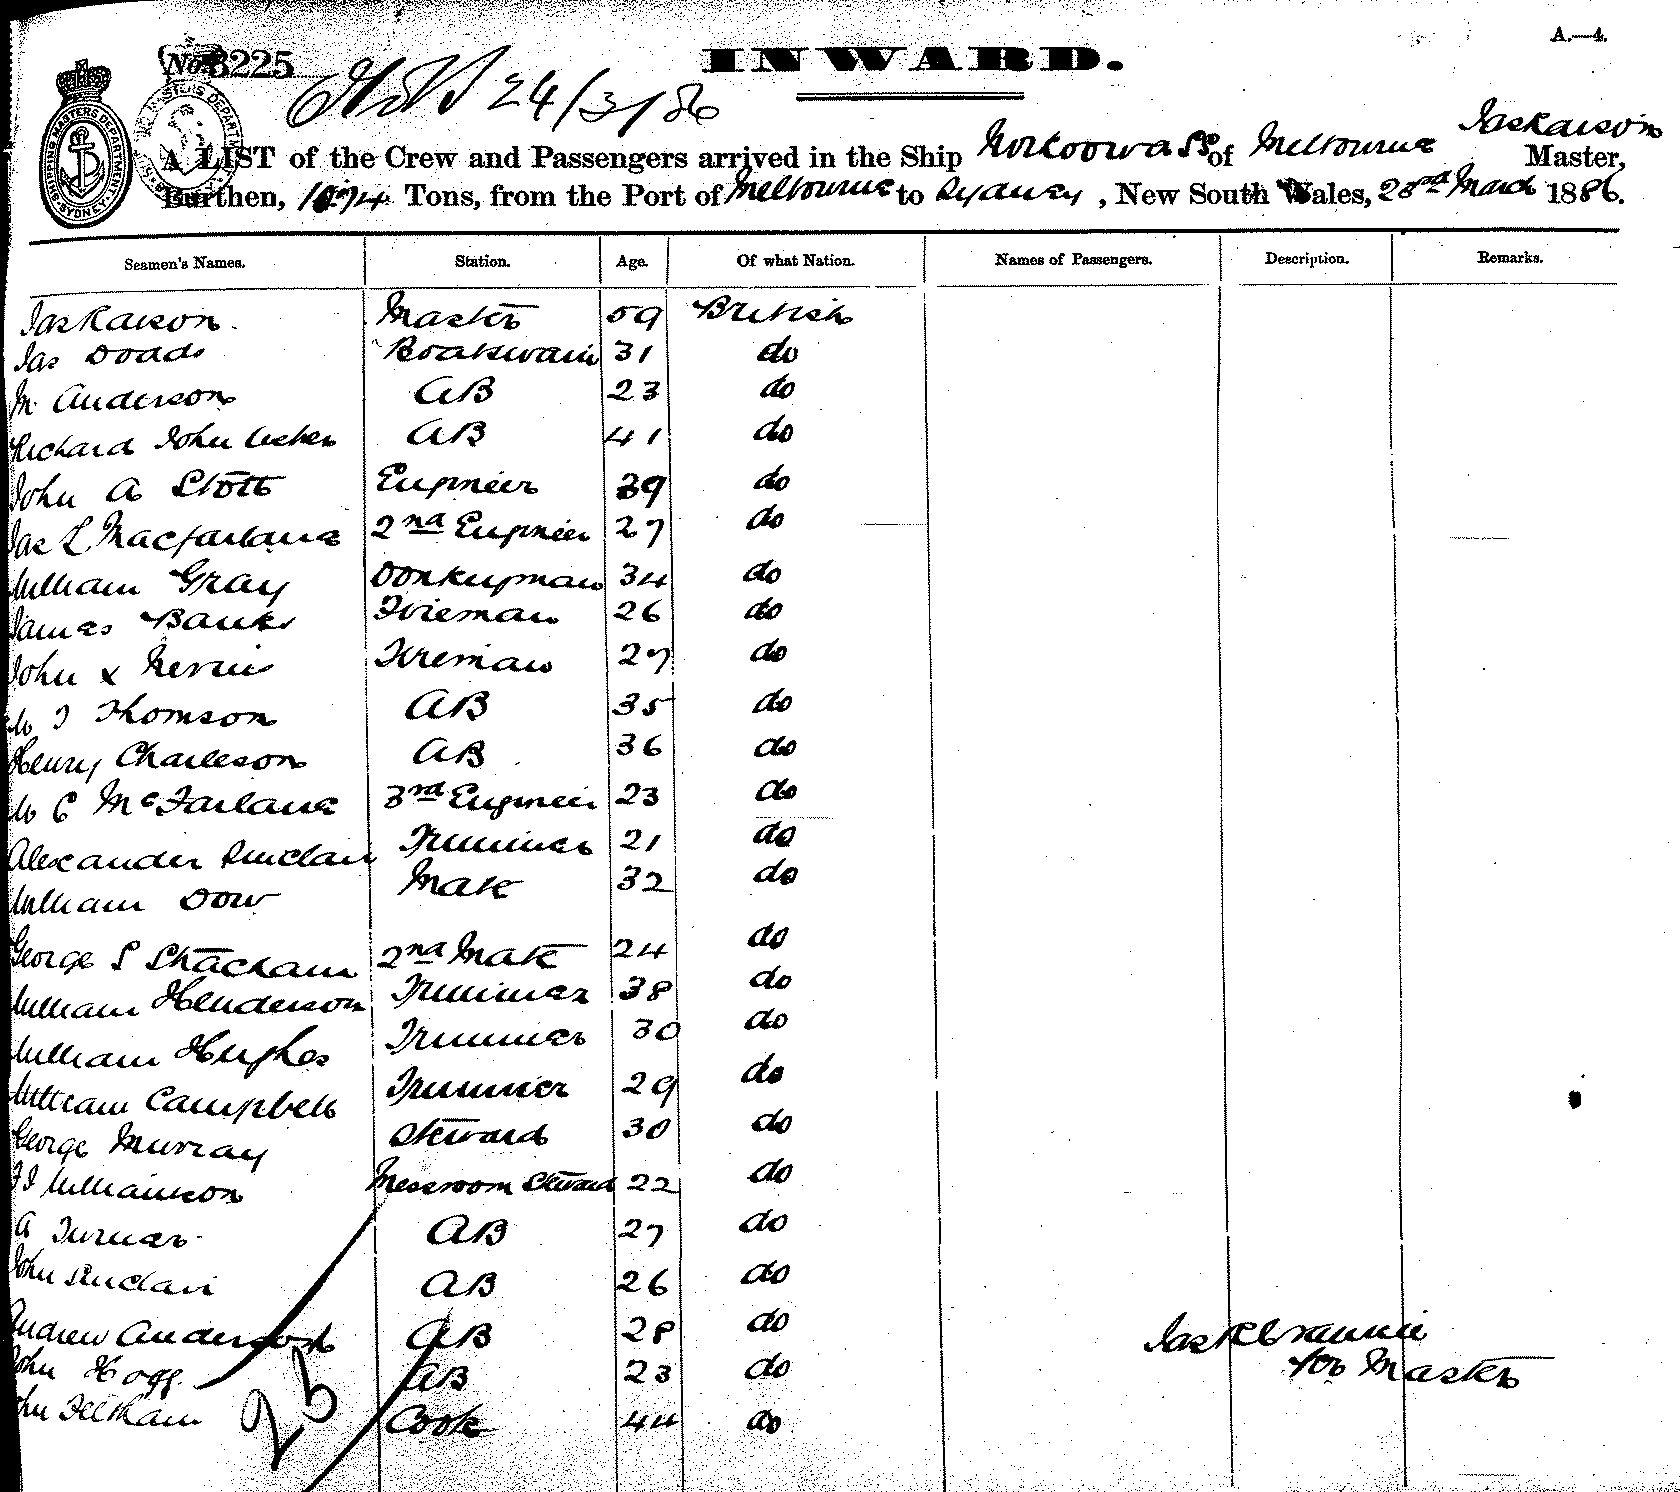 A.—4.
No. 3225
INWARD.
24/3/86
A LIST of the Crew and Passengers arrived in the Ship SS of Melbourne Jas Kaison Master,
Burthen, Tons, from the Port of Melbourne to Sydney, New South Wales, 23rd March 1886.
Seamen's Names. Station. Age. Of what Nation. Names of Passengers. Description. Remarks.
Jas Kaison Master 59 British
Jas Dodds Boatswain 31 do
M Anderson AB 23 do
Richard John Usher AB 41 do
John A Stott Engineer 39 do
Jas L Macfarlane 2nd Engineer 27 do
William Gray Donkeyman 34 do
James Banks Fireman 26 do
John Fireman 27 do
Thomson AB 35 do
Henry Charleson AB 36 do
W C McFarlane 3rd Engineer 23 do
Alexander Sinclair Trimmer 21 do
William Dow Mate 32 do
George S Strachan 2nd Mate 24 do
William Henderson Trimmer 38 do
William Hughes Trimmer 30 do
William Campbell Trimmer 29 do
George Murray Steward 30 do
Williamson Messroom Steward 22 do
A Turner AB 27 do
John Sinclair AB 26 do
Andrew Anderson AB 28 do
John Hogg AB 23 do
John Feltham Cook 44 do
25
for Master